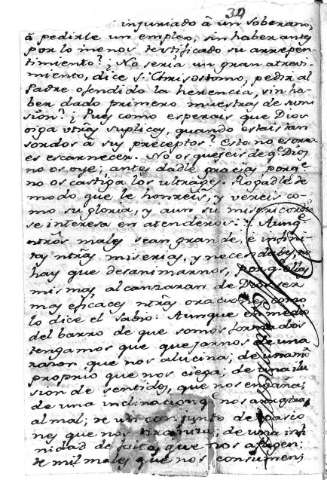 39
injuriado à un soberano,
à pedirle un empleo, sin haber antes
por lo menos testificado su arrepen-
timiento? No seria un gran atrevi-
miento, dice S. Chrisostomo, pedir al
Padre ofendido la herencia, sin ha-
ber dado primero muestras de sumi
sion? ¿Pues como esperais que Dios
oiga vtras suplicas, quando estais tan
sordos à sus preceptos? Esto no es orar
es escarnecer. No os quexeis de q.e Dios
no os oye; antes dadle gracias, porq.e
no os castiga los ultrages. Rogadle de
modo que le honreis, y vereis co-
mo su gloria, y aun su misericordia
se interesa en atenderos. Y Aunq.e
ntros males sean grandes, è infini
tas ntras miserias, y necesidades, no
hay que desanimarnos, porq. ellas
mismas alcanzaran de Dios ser
muy eficaces ntras oraciones, como
lo dice el Sabio. Aunque en medio
del barro de que somos formados
tengamos que quejarnos de una
razon que nos alucina; de un amor
proprio que nos ciega; de una ilu
sion de sentidos, que nos engaña;
de una inclinacion q. nos arrastra
al mal; de un conjunto de pasio
nes que nos tiraniza; de una infi
nidad de que nos afligen;
de mil males que nos consumen;